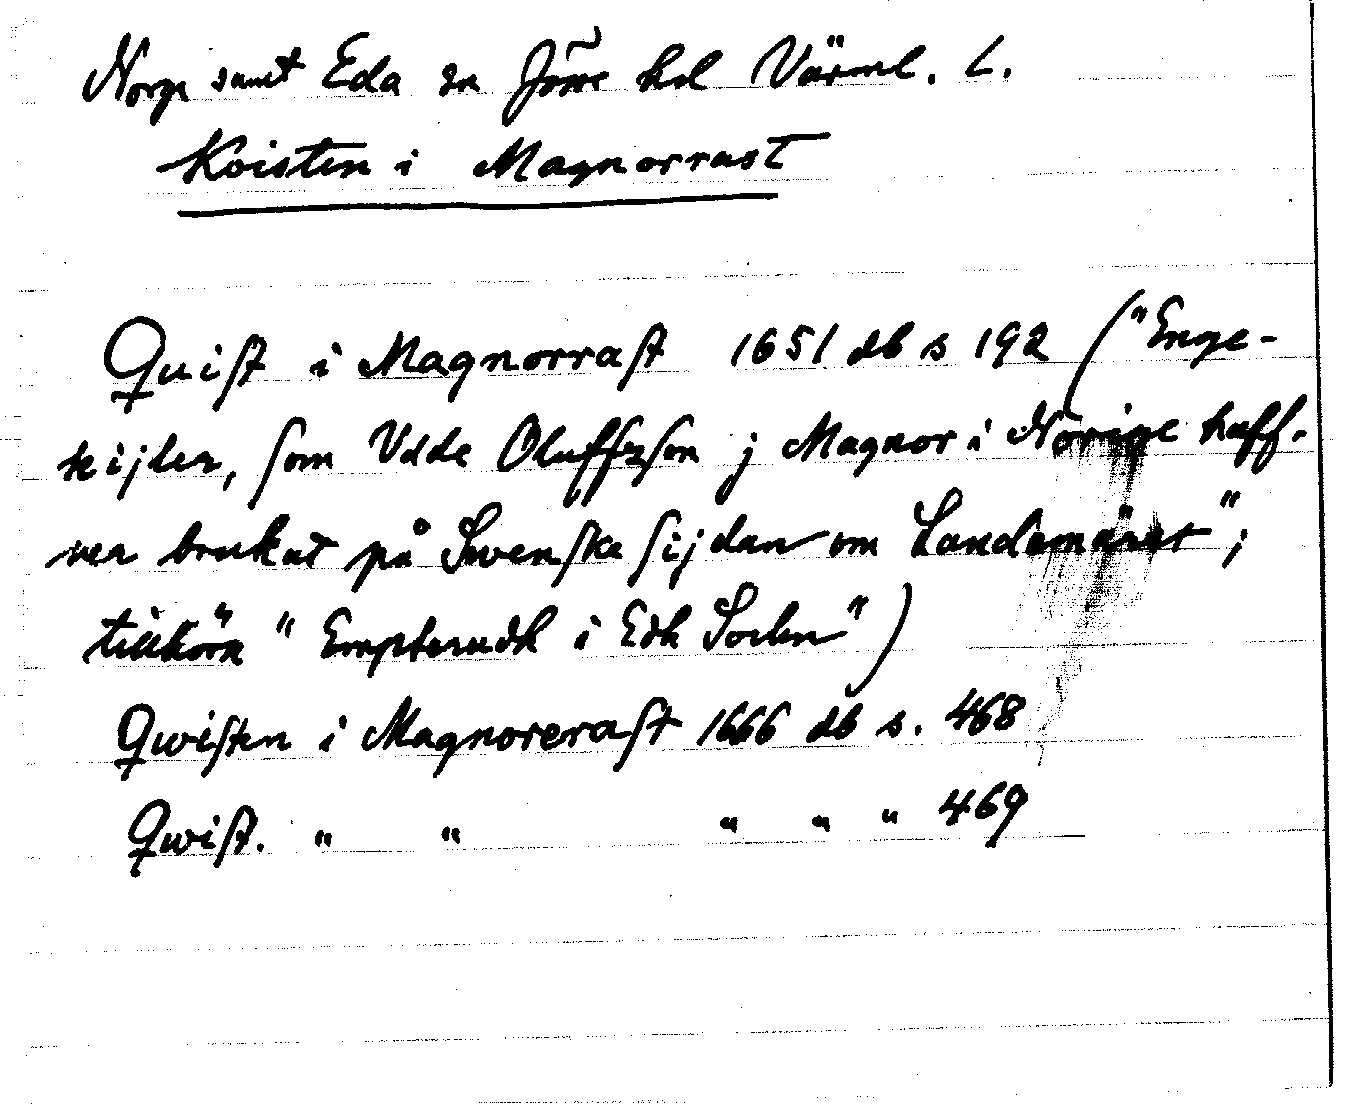 Norge samt Eda sn Jösse hd Värml. L.
Kvisten i Magnorrast
Quist i Magnorrast 1651 db s 192 ("Enge-
kijler, som Udde Oluffzson j Magnor i Norige haff-
ver brukat på Swenske sijdan om Landzmäret";
tillhöra "Empterudh i Edh Sochn")
Qwisten i Magnorerast 1666 db s. 468
Qwist. " " " " " 469